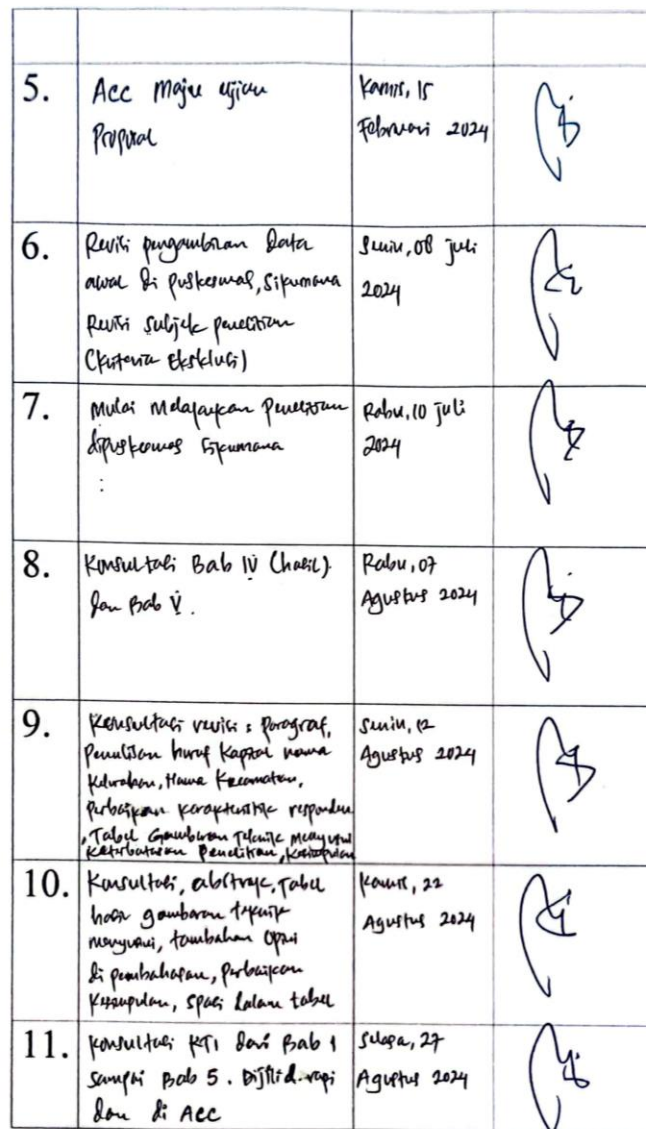 5.
Acc Maju ujian
Proposal
Kamis, 15
Februari 2024
6.
Revisi pengambilan Data
awal di puskesmas, Sikumana
Revisi subjek penelitian
(Kriteria Eksklusi)
Senin, 08 juli
2024
7.
Mulai Melajaukan Penelitian
dipuskesmas Sikumana
:
Rabu, 10 juli
2024
8.
Konsultasi Bab IV (hasil)
dan Bab V.
Rabu, 07
Agustus 2024
9.
Konsultasi revisi : paragraf,
Penulisan huruf Kapital nama
Kelurahan, Nama Kecamatan,
Perbaikan karakteristik responden
, Tabel Gambaran Teknik Menyusui
Keterbatasan Penelitian, Kesimpulan
Senin, 12
Agustus 2024
10.
Konsultasi, abstrak, Tabel
hasil gambaran teknik
menyusui, tambahan opini
di pembahasan, perbaikan
Kesimpulan, spasi dalam tabel
Kamis, 22
Agustus 2024
11.
Konsultasi KTI dari Bab 1
sampai Bab 5. Dijilid rapi
dan di Acc
Selasa, 27
Agustus 2024